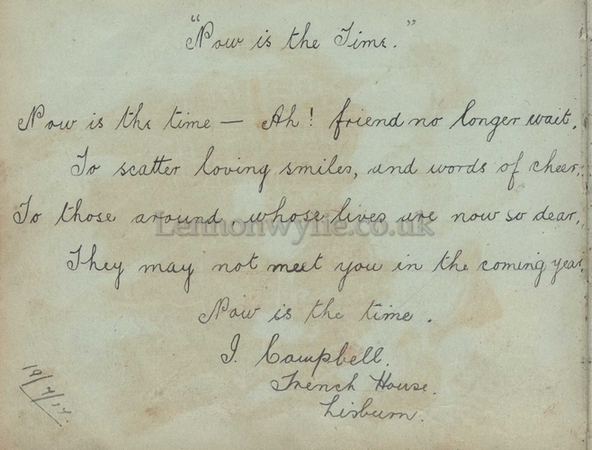 "Now is the Time."
Now is the time — Ah! friend no longer wait,
To scatter loving smiles, and words of cheer,
To those around, whose lives are now so dear,
Lennonwylie.co.uk
They may not meet you in the coming year,
Now is the time.
J. Campbell.
French House.
Lisburn.
19/4/17.